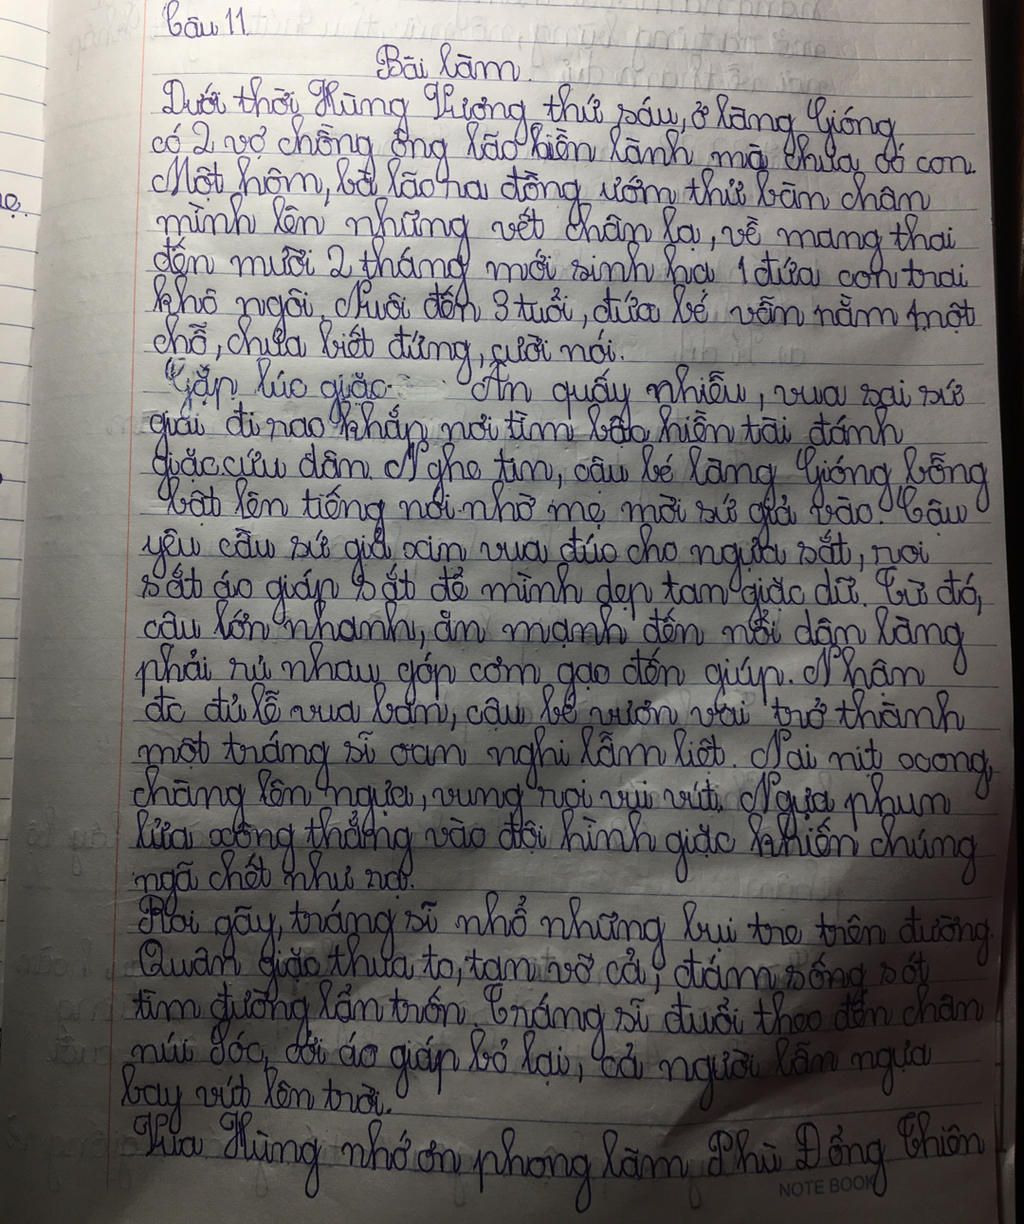 Câu 11.
Bài làm.
Dưới thời Hùng Vương thứ sáu, ở làng Gióng
có 2 vợ chồng ông lão hiền lành mà chưa có con.
Một hôm, bà lão ra đồng ướm thử bàn chân
mình lên những vết chân lạ, về mang thai
đến mười 2 tháng mới sinh hạ 1 đứa con trai
khô ngôi. Nuôi đến 3 tuổi, đứa bé vẫn nằm một
chỗ, chưa biết đứng, cười nói.
Gặp lúc giặc Ân quấy nhiễu, vua sai sứ
giải đi rao khắp nơi tìm bậc hiền tài đánh
giặc cứu dân. Nghe tin, cậu bé làng Gióng bỗng
bật lên tiếng nói nhờ mẹ mời sứ giả vào. Cậu
yêu cầu sứ giả xin vua đúc cho ngựa sắt, roi
sắt áo giáp sắt để mình dẹp tan giặc dữ. Từ đó,
cậu lớn nhanh, ăn mạnh đến nỗi dân làng
phải rủ nhau góp cơm gạo đến giúp. Nhận
đc đủ lễ vua ban, cậu bé vươn vai trở thành
một tráng sĩ oan nghi lẫm liệt. Nai nịt xong,
chàng lên ngựa, vung roi vùi vút. Ngựa phun
lửa xông thẳng vào đội hình giặc khiến chúng
ngã chết như rạ.
Roi gãy, tráng sĩ nhổ những bụi tre trên đường.
Quân giặc thua to, tan vỡ cả, đám sống sót
tìm đường lẩn trốn. Tráng sĩ đuổi theo đến chân
núi Sóc, cởi áo giáp bỏ lại, cả người lẫn ngựa
bay vút lên trời.
Vua Hùng nhớ ơn phong làm Phù Đổng Thiên
NOTE BOOK